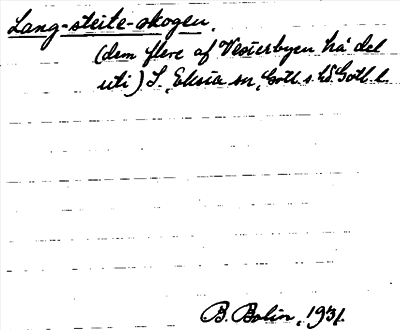 Lang-steile-skogen.
(dem flere af Vesterbyen ha del
uti) S. Eksta sn, Gotl. s. hd Gotl. l.
B. Bolin, 1931.